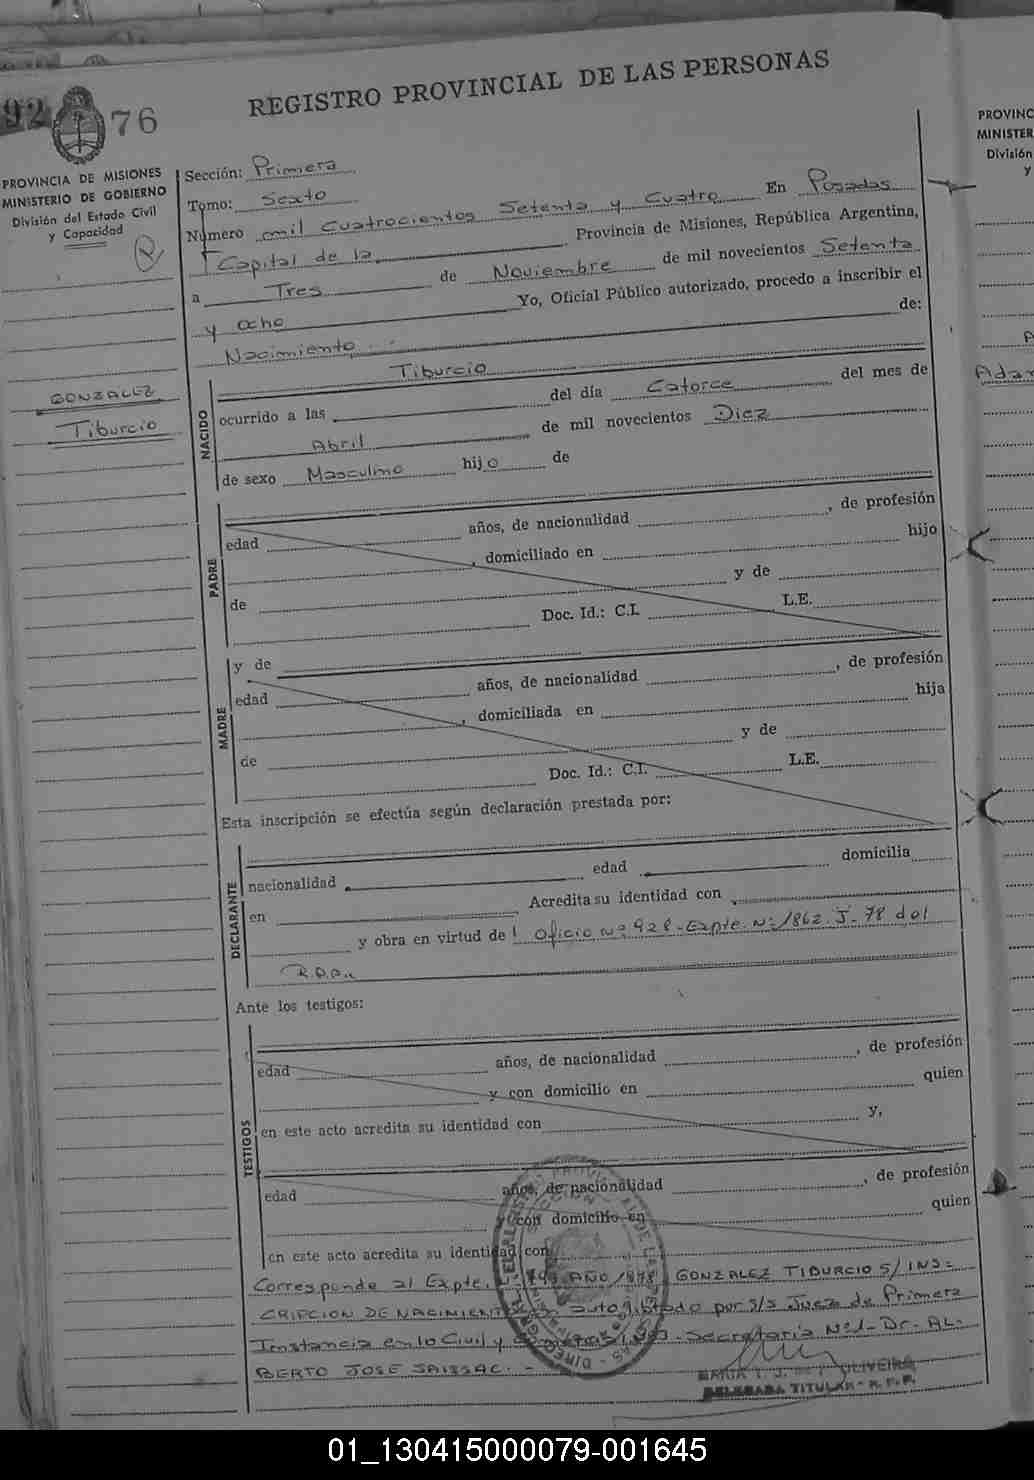 REGISTRO PROVINCIAL DE LAS PERSONAS
92 76
PROVINCIA DE MISIONES
MINISTERIO DE GOBIERNO
División del Estado Civil
y Capacidad
GONZALEZ
Tiburcio
Sección: Primera
Tomo: Sexto
Número mil Cuatrocientos Setenta y Cuatro En Posadas
Capital de la Provincia de Misiones, República Argentina,
a Tres de Noviembre de mil novecientos Setenta
y Ocho Yo, Oficial Público autorizado, procedo a inscribir el
Nacimiento de:
NACIDO
Tiburcio
ocurrido a las del día Catorce del mes de
Abril de mil novecientos Diez
de sexo Masculino hijo de
PADRE
edad años, de nacionalidad , de profesión
, domiciliado en hijo
de y de
Doc. Id.: C.I. L.E.
MADRE
y de
edad años, de nacionalidad , de profesión
, domiciliada en hija
de y de
Doc. Id.: C.I. L.E.
Esta inscripción se efectúa según declaración prestada por:
DECLARANTE
nacionalidad edad domicilia
en Acredita su identidad con
y obra en virtud de l Oficio Nº 928-Expte. Nº 1862. J-78 del
Ante los testigos:
TESTIGOS
edad años, de nacionalidad , de profesión
y con domicilio en quien
en este acto acredita su identidad con y,
edad años, de nacionalidad , de profesión
y con domicilio en quien
en este acto acredita su identidad con
Corresponde al Expte. AÑO 1978, GONZALEZ TIBURCIO S/ INS-
CRIPCION DE NACIMIENTO por s/s Juez de Primera
Instancia en lo Civil y Secretaria Nº1-Dr. AL-
BERTO JOSE SAISSAC.-
OLIVEIRA
DELEGADA TITULAR - R. P. P.
PROVINC
MINISTER
División
y
Adan
01_130415000079-001645